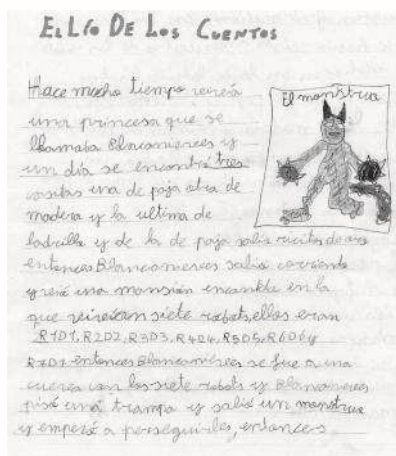 EL LÍO DE LOS CUENTOS
El monstruo
Hace mucho tiempo vivía
una princesa que se
llamaba Blancanieves y
un día se encontró tres
casitas una de paja otra de
madera y la ultima de
ladrillo y de la de paja salió ricitos de oro
entonces Blancanieves salió corriendo
y vió una mansión encantada en la
que vivían siete robots, ellos eran
R1D1, R2D2, R3D3, R4D4, R5D5, R6D6 y
R7D7 entonces Blancanieves se fue a una
cueva con los siete robots y Blancanieves
pisó una trampa y salió un monstruo
y empezó a perseguirles, entonces